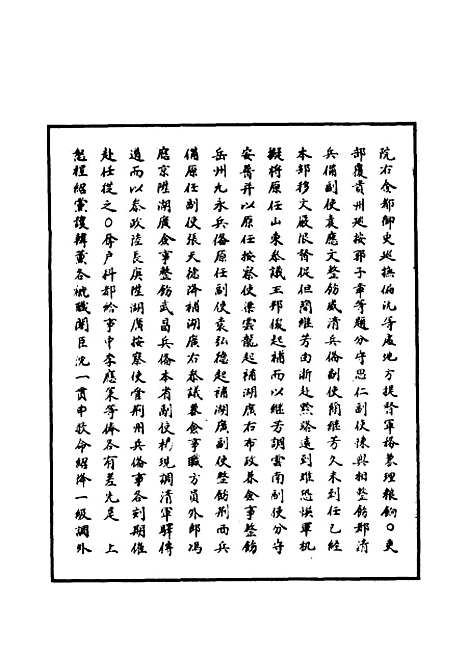 院右僉都御史巡撫偏沅等處地方提督軍務兼理糧餉○吏
部覆貴州巡按郭子章等題分守思仁副使陳與相整飭都清
兵備副使袁應文整飭威清兵備副使簡繼芳久未到任已經
本部移文嚴限督促但簡繼芳由浙赴黔路遠到難恐悞軍机
擬將原任山東參議王邦俊起補而以繼芳調雲南副使分守
安普并以原任按察使梁雲龍起補湖廣右布政兼僉事整飭
岳州九永兵備原任副使袁弘德起補湖廣副使整飭荊西兵
備原任副使張天德降補湖廣右參議兼僉事職方員外郎馮
應京陞湖廣僉事整飭武昌兵備本省副使楊現調清軍驛傳
道而以參政陸長庚陞湖廣按察使管荊州兵備事各刻期催
赴任從之○奪戶科都給事中李應策等俸各有差先是　上
怒程紹黨護輯董各褫職閣臣沈一貫申救命紹降一級調外